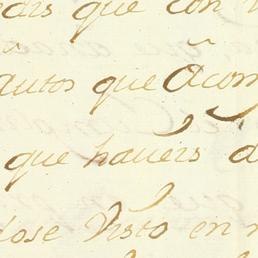 que con
autos que Acom
que haveis d
dose Visto en